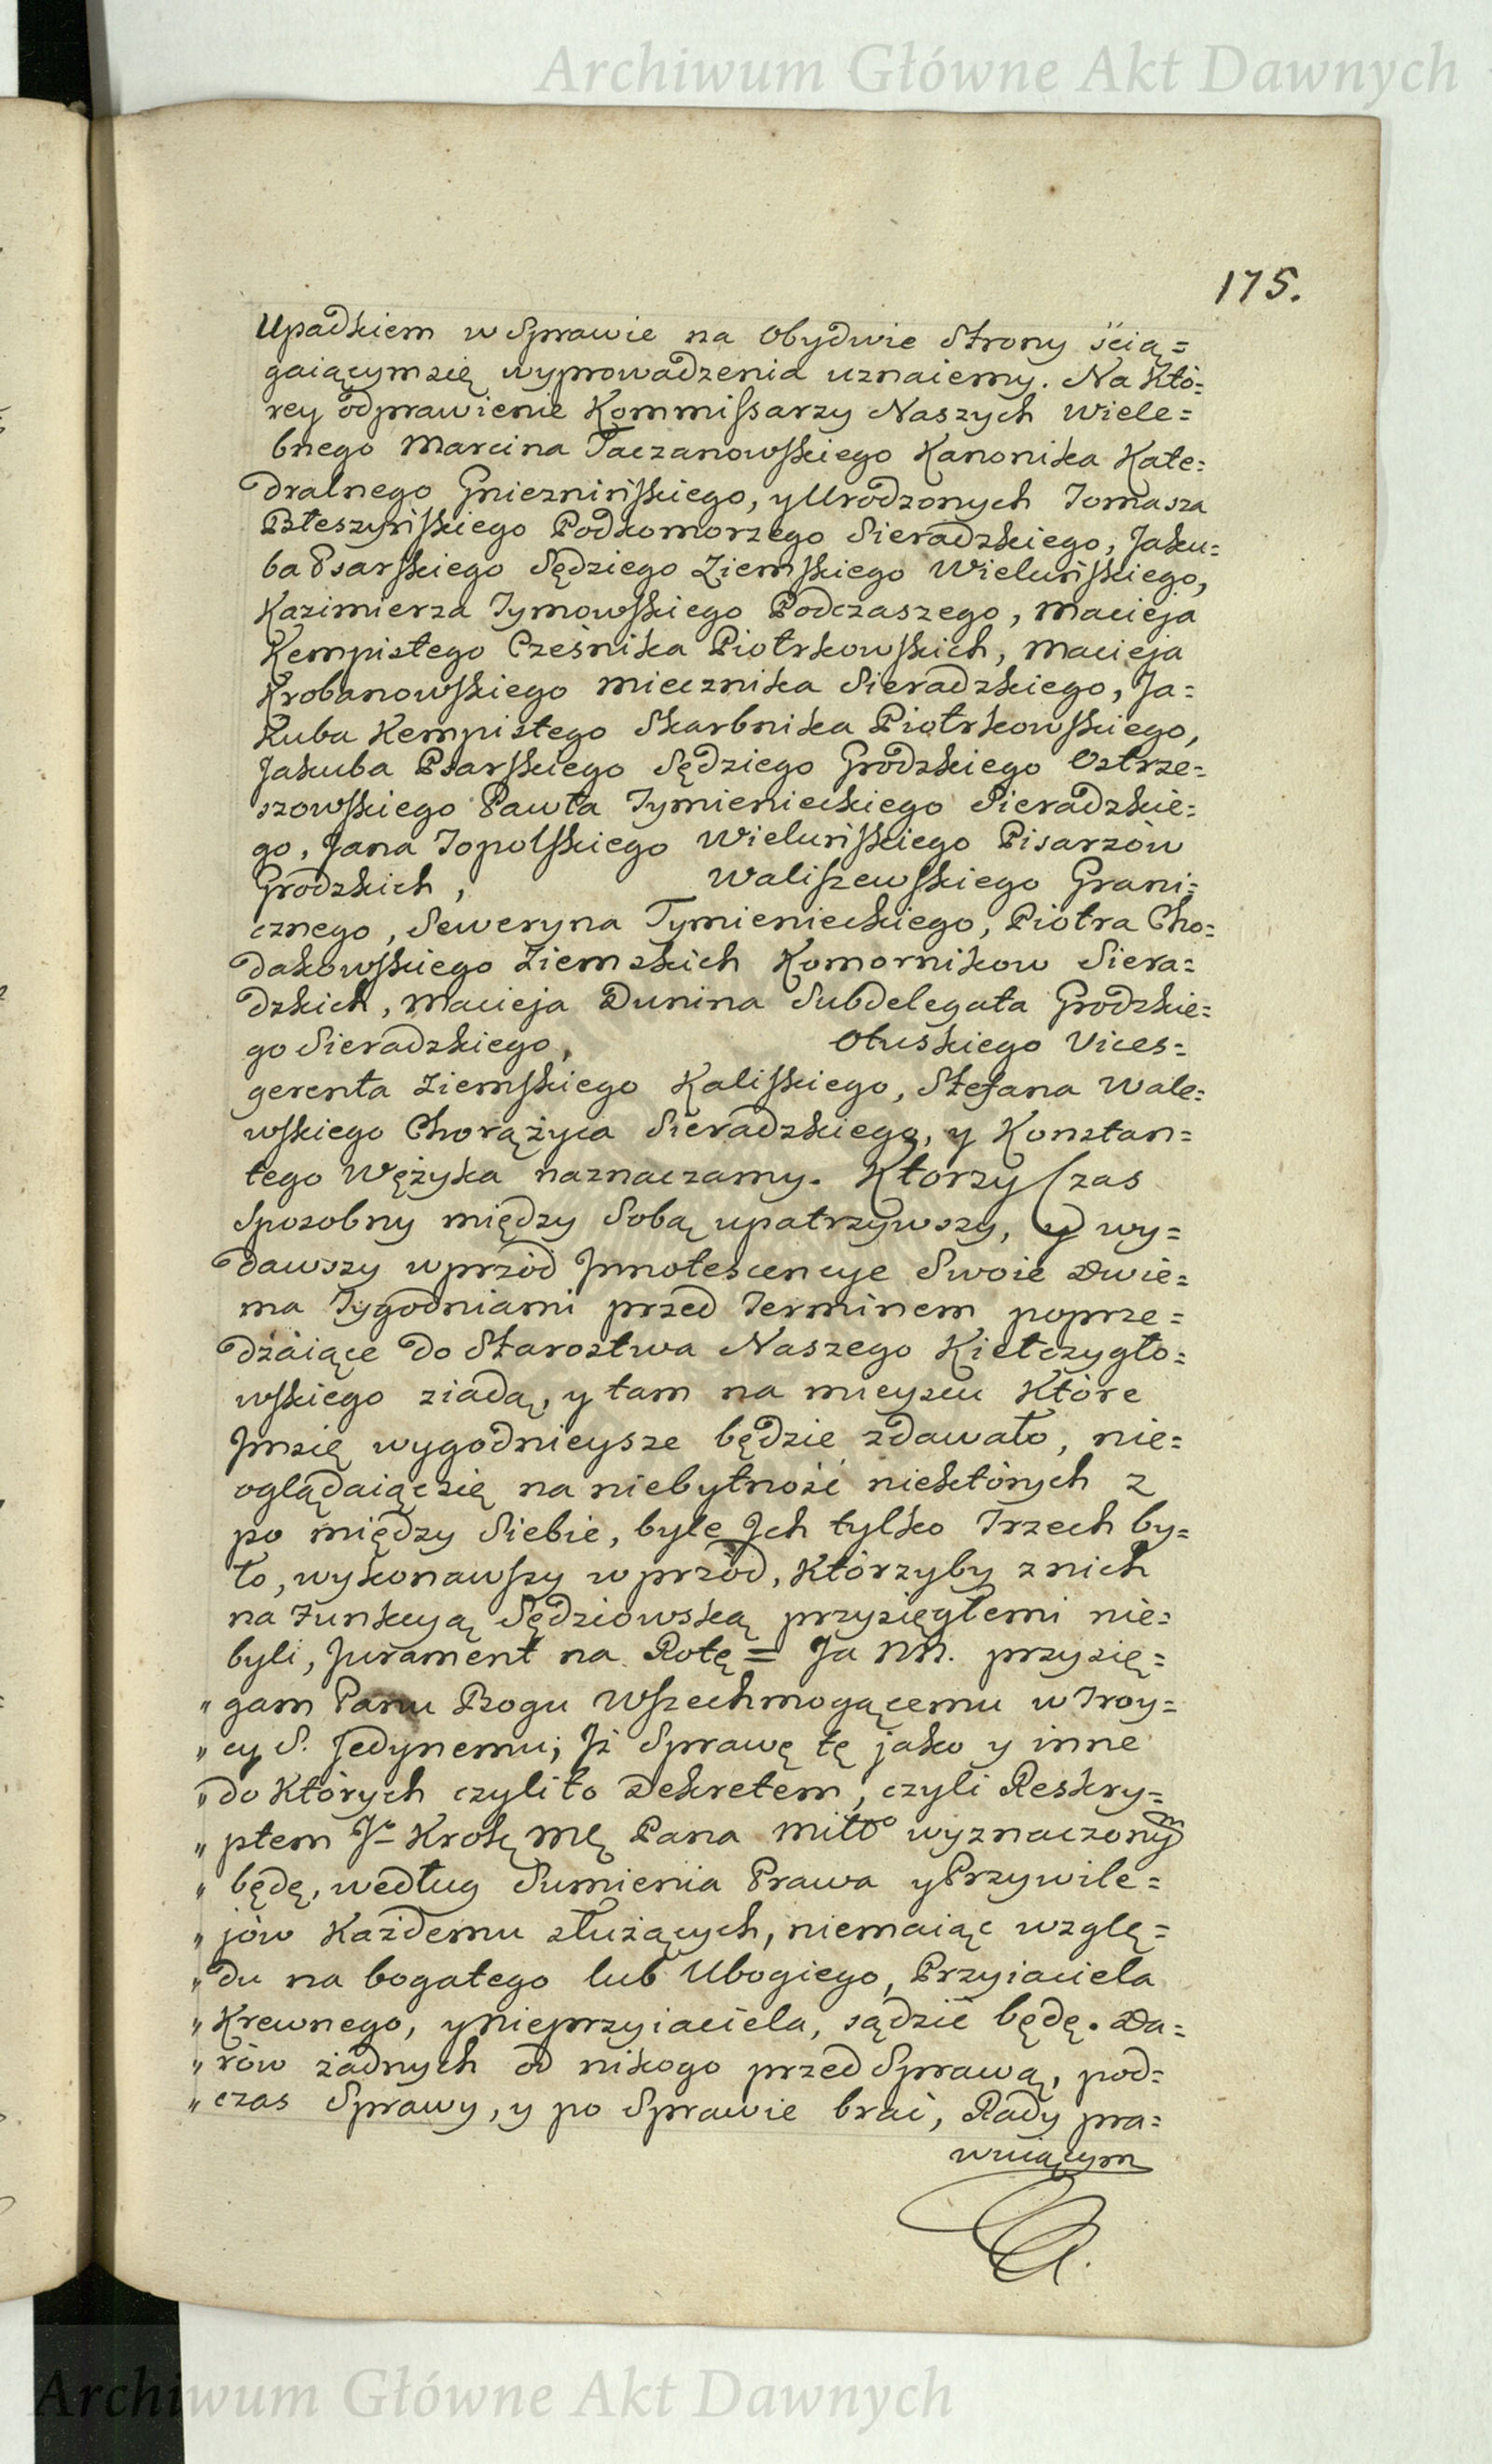 Archiwum Główne Akt Dawnych
175.
Upadkiem w Sprawie na Obydwie Strony ścią=
gaiącym się wyprowadzenia uznaiemy. Na Któ=
rey odprawienie Kommissarzy Naszych Wiele=
bnego Marcina Taczanowskiego Kanonika Kate=
dralnego Gnieznińskiego, y Urodzonych Tomasza
Błeszyńskiego Podkomorzego Sieradzkiego, Jaku=
ba Psarskiego Sędziego Ziemskiego Wieluńskiego,
Kazimierza Tymowskiego Podczaszego, Macieja
Kempistego Cześnika Piotrkowskich, Macieja
Krobanowskiego Miecznika Sieradzkiego, Ja=
kuba Kempistego Skarbnika Piotrkowskiego,
Jakuba Psarskiego Sędziego Grodzkiego Ostrze=
szowskiego Pawła Tymienieckiego Sieradzkie=
go, Jana Topolskiego Wieluńskiego Pisarzów
Grodzkich, Waliszewskiego Grani=
cznego, Seweryna Tymienieckiego, Piotra Cho=
dakowskiego Ziemskich Komornikow Siera=
dzkich, Macieja Dunina Subdelegata Grodzkie=
go Sieradzkiego, Otuskiego Vices=
gerenta Ziemskiego Kaliskiego, Stefana Wale=
wskiego Chorążyca Sieradzkiego, y Konstan=
tego Wężyka naznaczamy. Ktorzy Czas
Sposobny między Sobą upatrzywszy, y wy=
dawszy wprzód Jnnotescencye Swoie Dwie=
ma Tygodniami przed Terminem poprze=
dzaiące do Starostwa Naszego Kiełczygło=
wskiego ziadą, y tam na mieyscu Które
Jm się wygodnieysze będzie zdawało, nie=
oglądaiąc się na niebytność niektórych z
po między Siebie, byle Jch tylko Trzech by=
ło, wykonawszy wprzód, Którzyby z nich
na Funkcyą Sędziowską przysięgłemi nie=
byli, Jurament na Rotę = Ja NN. przysię=
„ gam Panu Bogu Wszechmogącemu w Troy=
„ cy S. Jedynemu; Jż Sprawę tę jako y inne
„ do Których czyli to Dekretem, czyli Reskry=
„ ptem Jo Krolę Mę Pana Miłło wyznaczonym
„ będę, według Sumienia Prawa y Przywile=
„ jów Każdemu służących, niemaiąc wzglę=
„ du na bogatego lub Ubogiego, Przyiaciela
„ Krewnego, y Nieprzyiaciela, sądzić będę. Da=
„ rów żadnych od nikogo przed Sprawą, pod=
„ czas Sprawy, y po Sprawie brać, Rady pra=
wuiącym
Archiwum Główne Akt Dawnych